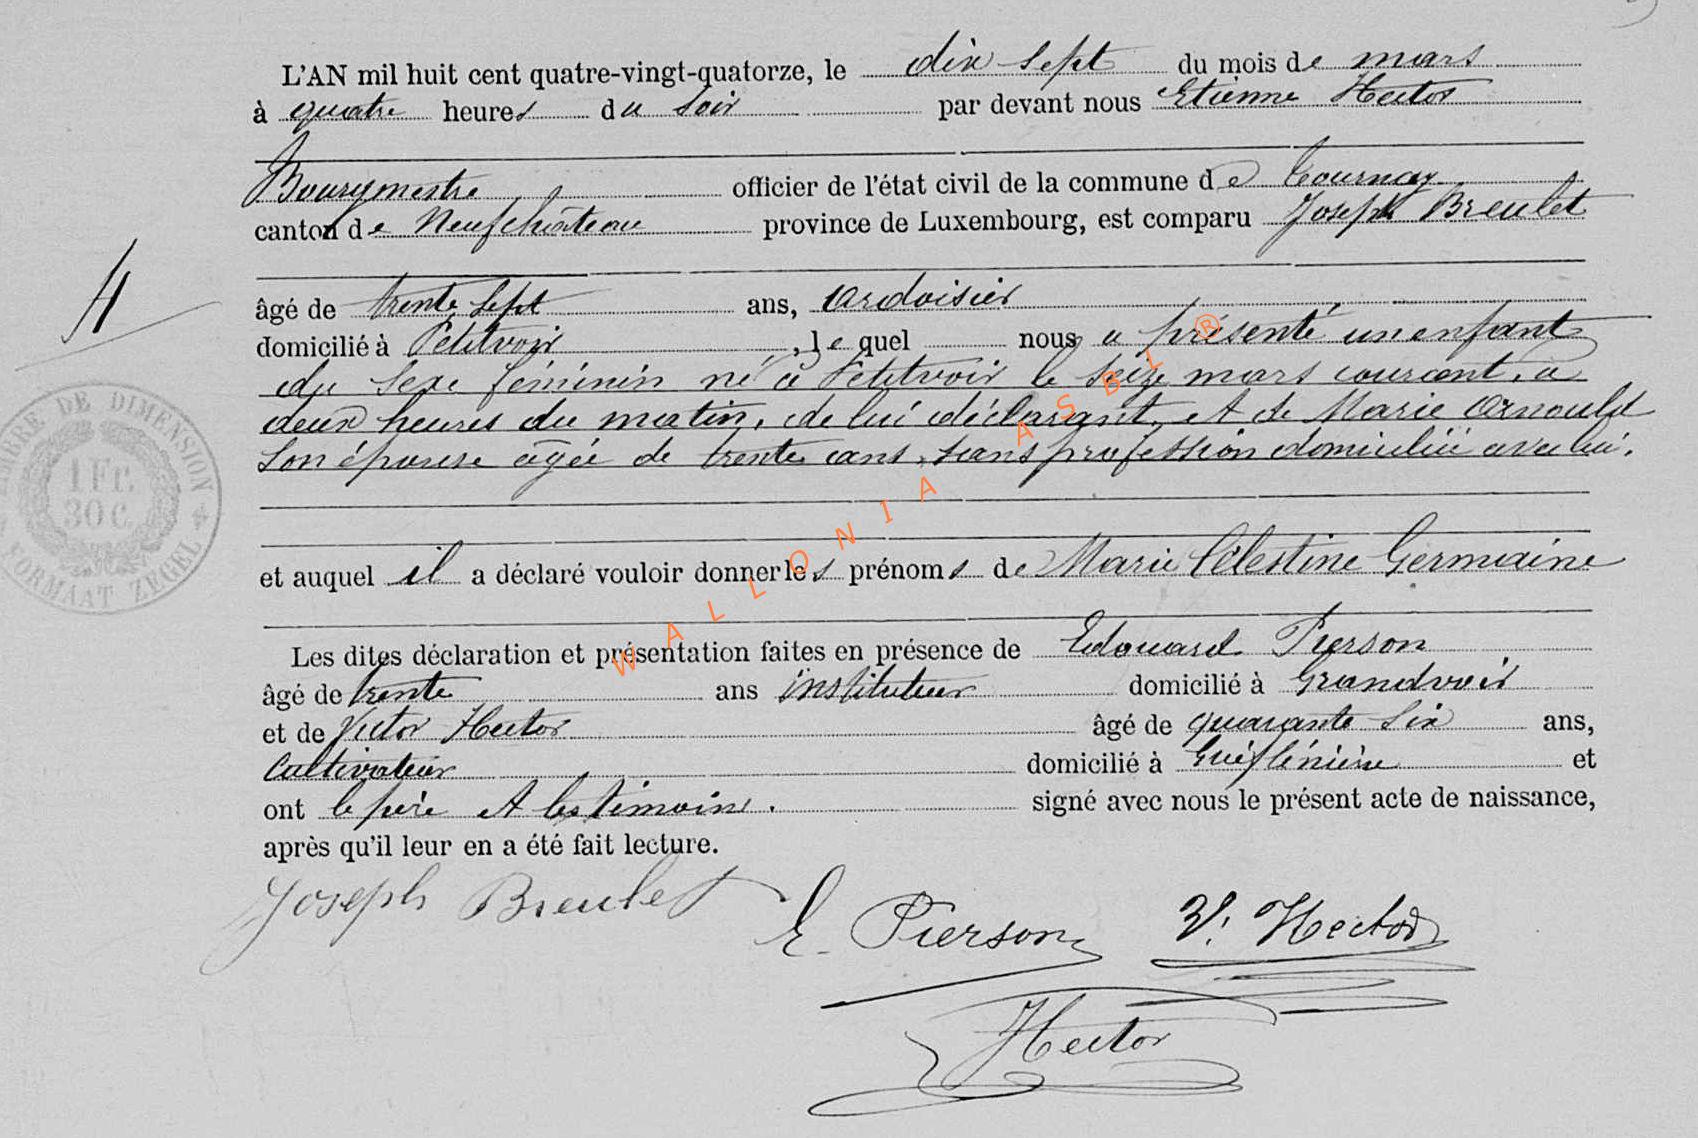 L'AN mil huit cent quatre-vingt-quatorze, le dix sept du mois de mars
à quatre heures du soir par devant nous Etienne Hector
Bourgmestre officier de l'état civil de la commune de Tournay
canton de Neufchâteau province de Luxembourg, est comparu Joseph Breulet
4
âgé de trente sept ans, ardoisier
domicilié à Petitvoir, lequel nous a présenté un enfant
du sexe féminin né à Petitvoir le seize mars courant, à
deux heures du matin, de lui déclarant, et de Marie Arnould
son épouse âgée de trente ans, sans profession domiciliée avec lui.
TIMBRE DE DIMENSION
1 Fr.
30 C.
FORMAAT ZEGEL
et auquel il a déclaré vouloir donner les prénoms de Marie Célestine Germaine
Les dites déclaration et présentation faites en présence de Edouard Pierson
âgé de trente ans instituteur domicilié à Grandvoir
et de Victor Hector âgé de quarante six ans,
Cultivateur domicilié à et
ont le père et les témoins. signé avec nous le présent acte de naissance,
après qu'il leur en a été fait lecture.
Joseph Breulet
E. Pierson
V. Hector
Hector
WALLONIA ASBL ®